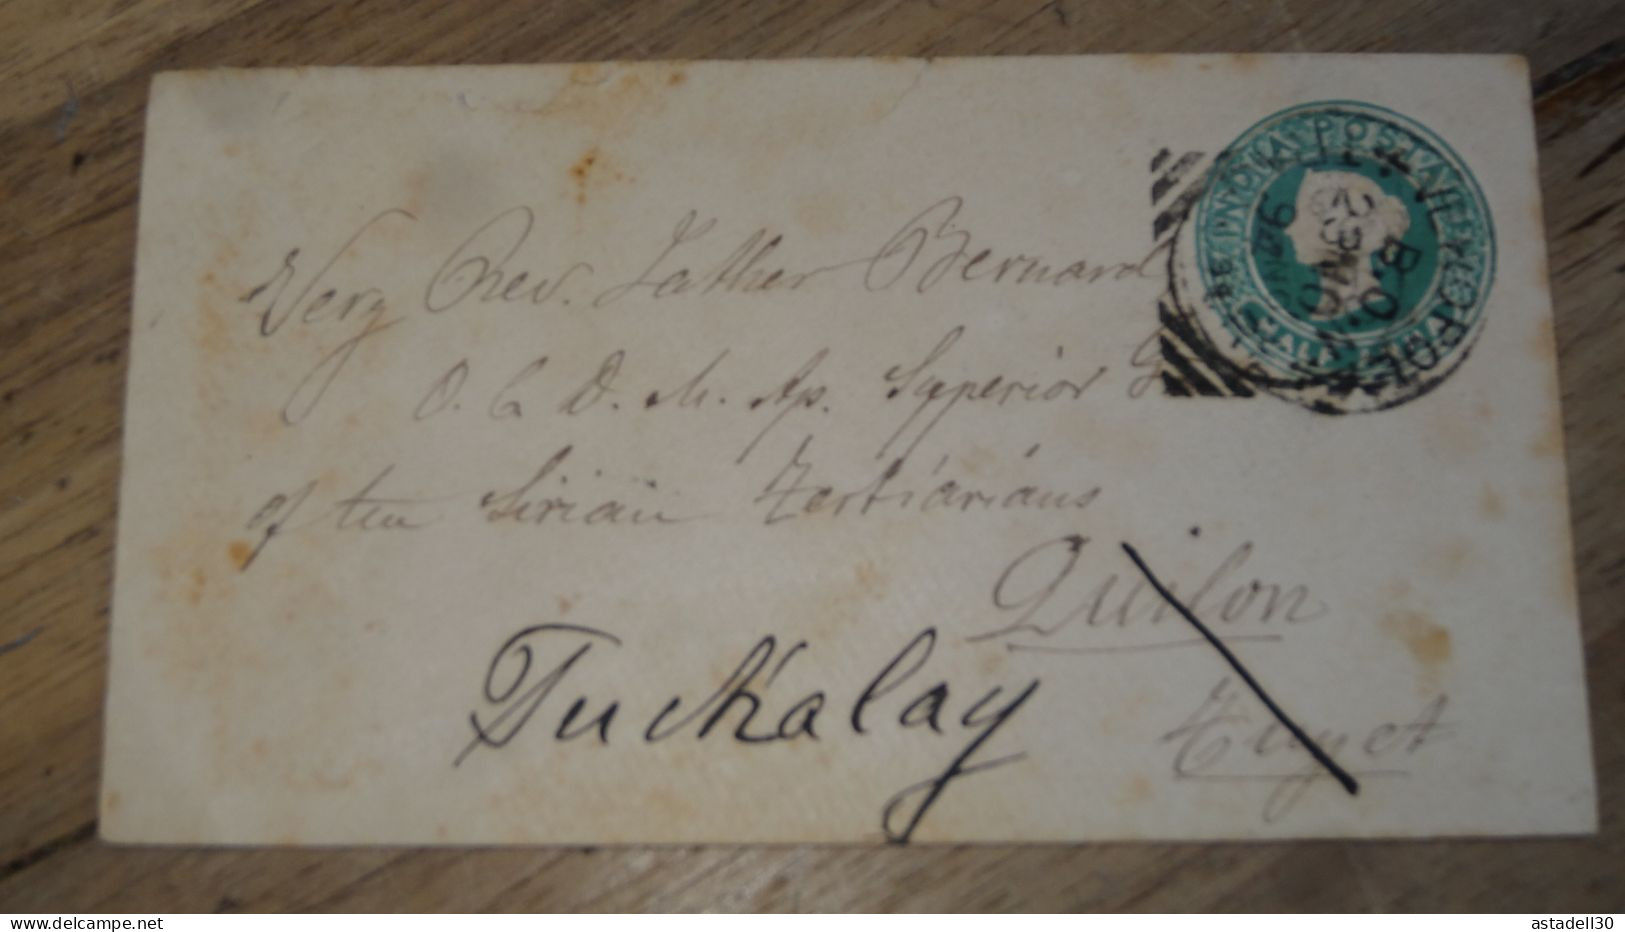 INDIA POSTAGE
HALF ANNA
B.O.
Very Rev. Father Bernard
O. C. D. M. Ap. Syperior G
of the Sirian Tertiarians
Quilon
Tuckalay
www.delcampe.net
astadell30